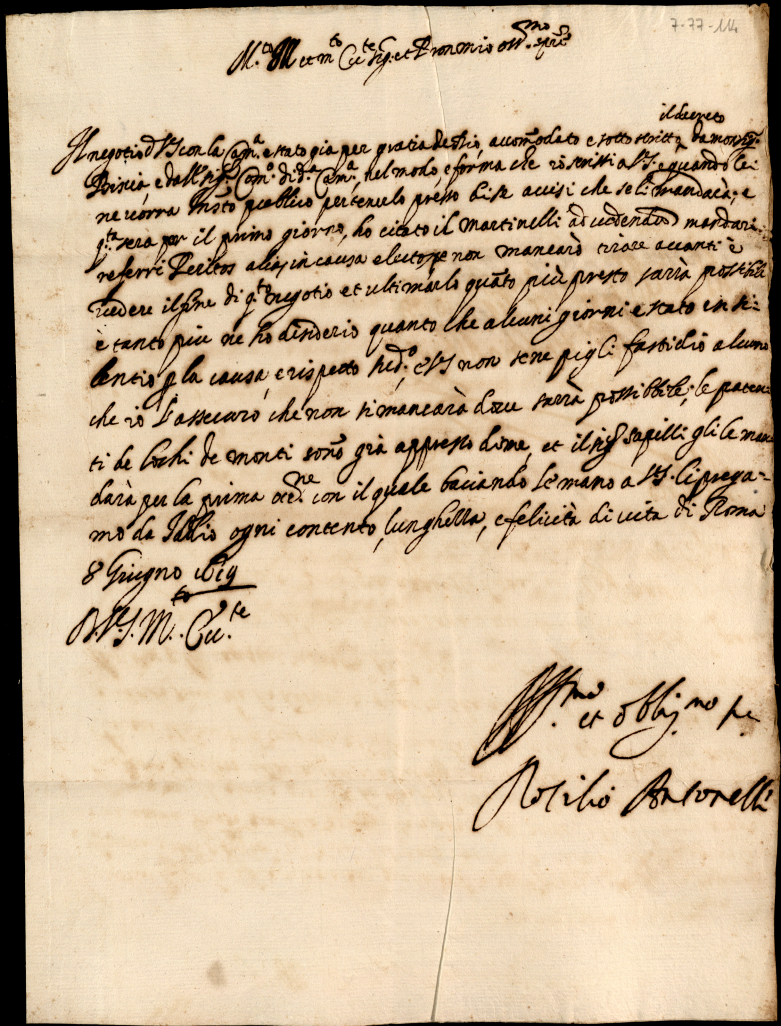 7-77-114
M.to M et m.to Ecc.te sig. et Pron mio oss.mo
il decreto
Il negotio di VS con la Cam.a e stato gia per gratia de Dio, accomodato e sotto scritto da monsig.
e dall' sig. Com.o di d.a Cam.a, nel modo e forma che io scrissi a VS: e quando lei
ne vorrà Inst.o publico per tenerlo presso di se avisi che se li mandarà; e
q.ta sera per il primo giorno, ho citato il Martinelli ad videndum mandari
referri alias in causa et non mancarò tirare avanti e
vedere il fine di q.to negotio et ultimarlo quāto più presto sarrà possibile
e tanto piu ne ho desiderio quanto che alcuni giorni e stato in si-
lentio p la causa, e rispetto VS non se ne pigli fastidio alcuno
che io l'assecuro che non si mancarà dove sarrà possibbile; le paten
ti de lochi de monti sonno già appresso dime, et il sig sapilli gli le man
darà per la prima con il quale baciando le mano a VS. li prega-
mo da Iddio ogni contento, lunghezza, e felicità di vita di Roma
8 Giugno 1619
D. V.S. M.to Ecc.te
Aff.mo et obblig.mo se.
Rotilio Antonelli